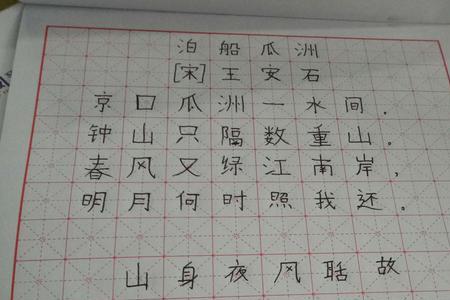 泊船瓜洲
[宋]王安石
京口瓜洲一水间，
钟山只隔数重山。
春风又绿江南岸，
明月何时照我还。
山身夜风聒故